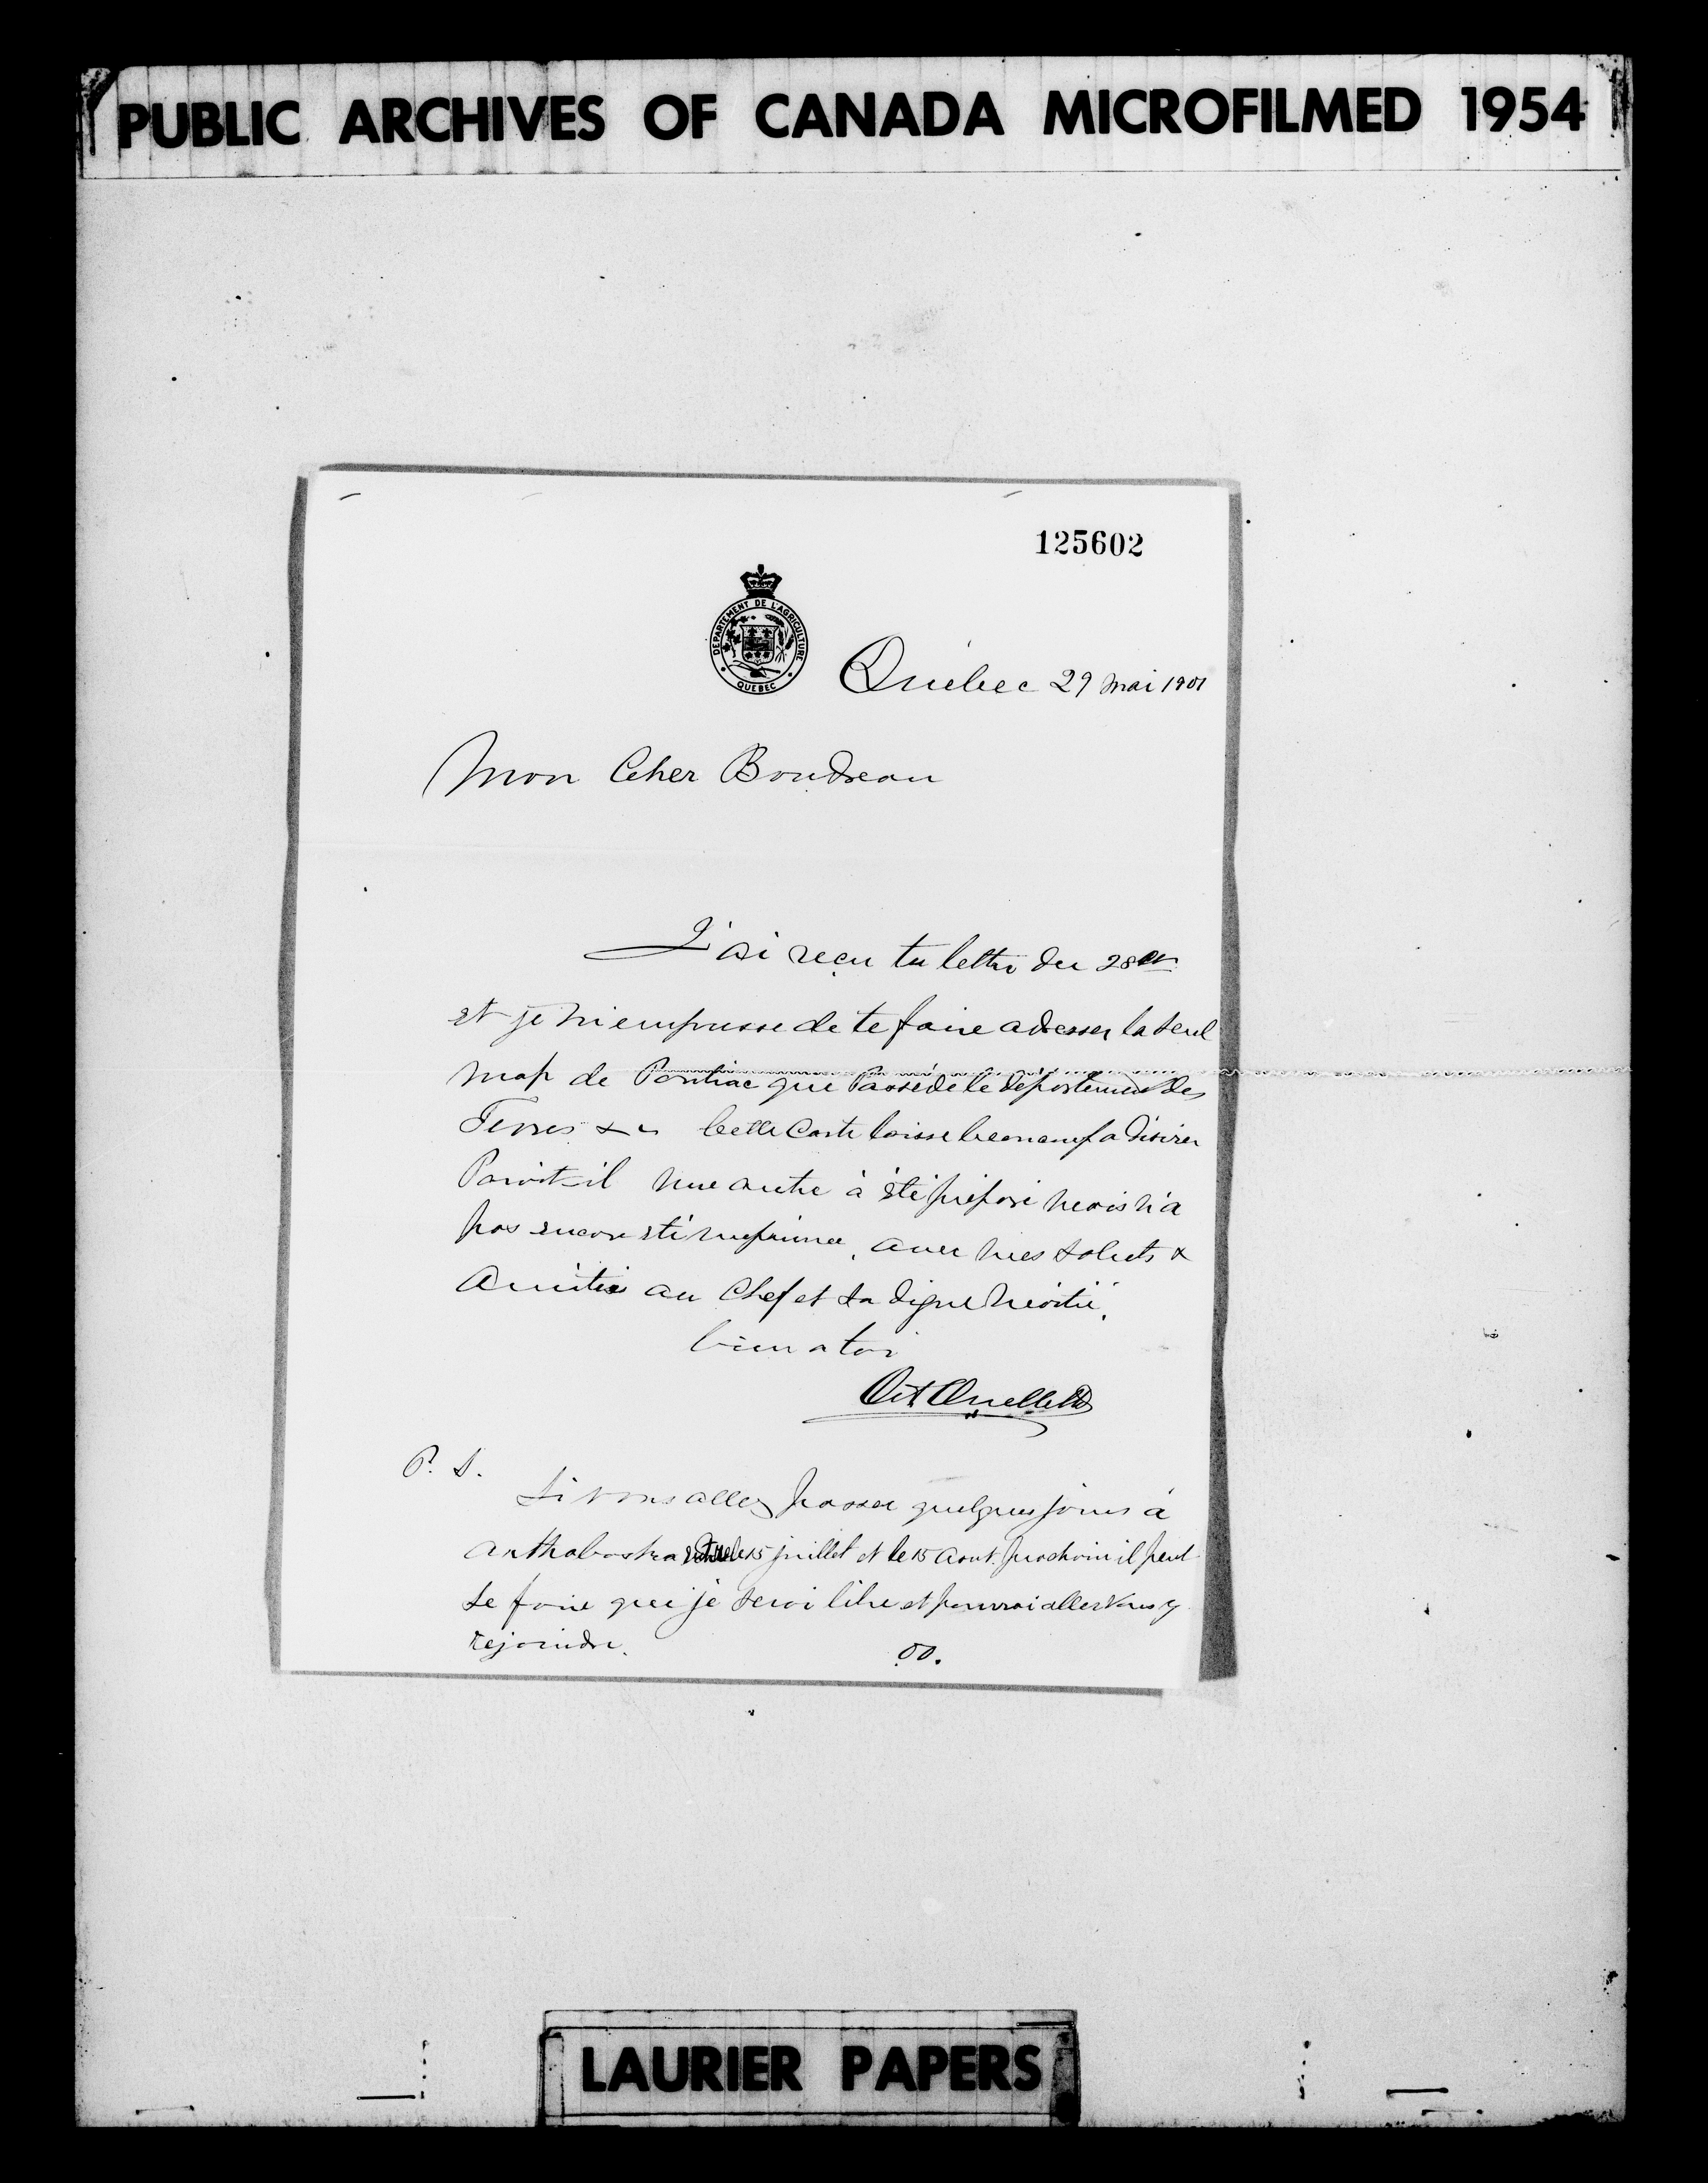 PUBLIC ARCHIVES OF CANADA MICROFILMED 1954
125602
DEPARTEMENT DE L'AGRICULTURE
QUEBEC
Québec 29 Mai 1901
Mon Cher Boudreau
J'ai reçu ta lettre du 28 
et je m'empresse de te faire adresser la seul
map de Pontiac que Possède le département des
Terres &c Cette Carte laisse beaucoup a désirer
Parait-il une autre à été préparé mais n'a
pas encore été imprimée, avec mes saluts &
Amitiés au Chef et sa digne moitié.
bien a toi
Ouellette
P. S.
Si vous allez passer quelques jours à
Arthabaska entre le 15 juillet et le 15 Aout prochain il peut
se faire que je serai libre et pourrai aller vous y
rejoindre.
OO.
LAURIER PAPERS